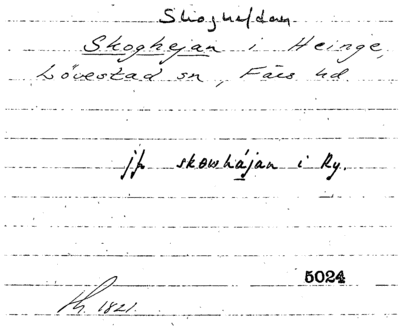 Skoghejdan
Skoghejan i Heinge,
Lövestad sn, Färs hd
jfr skowhájan i Ry.
5024
Th. 1821.